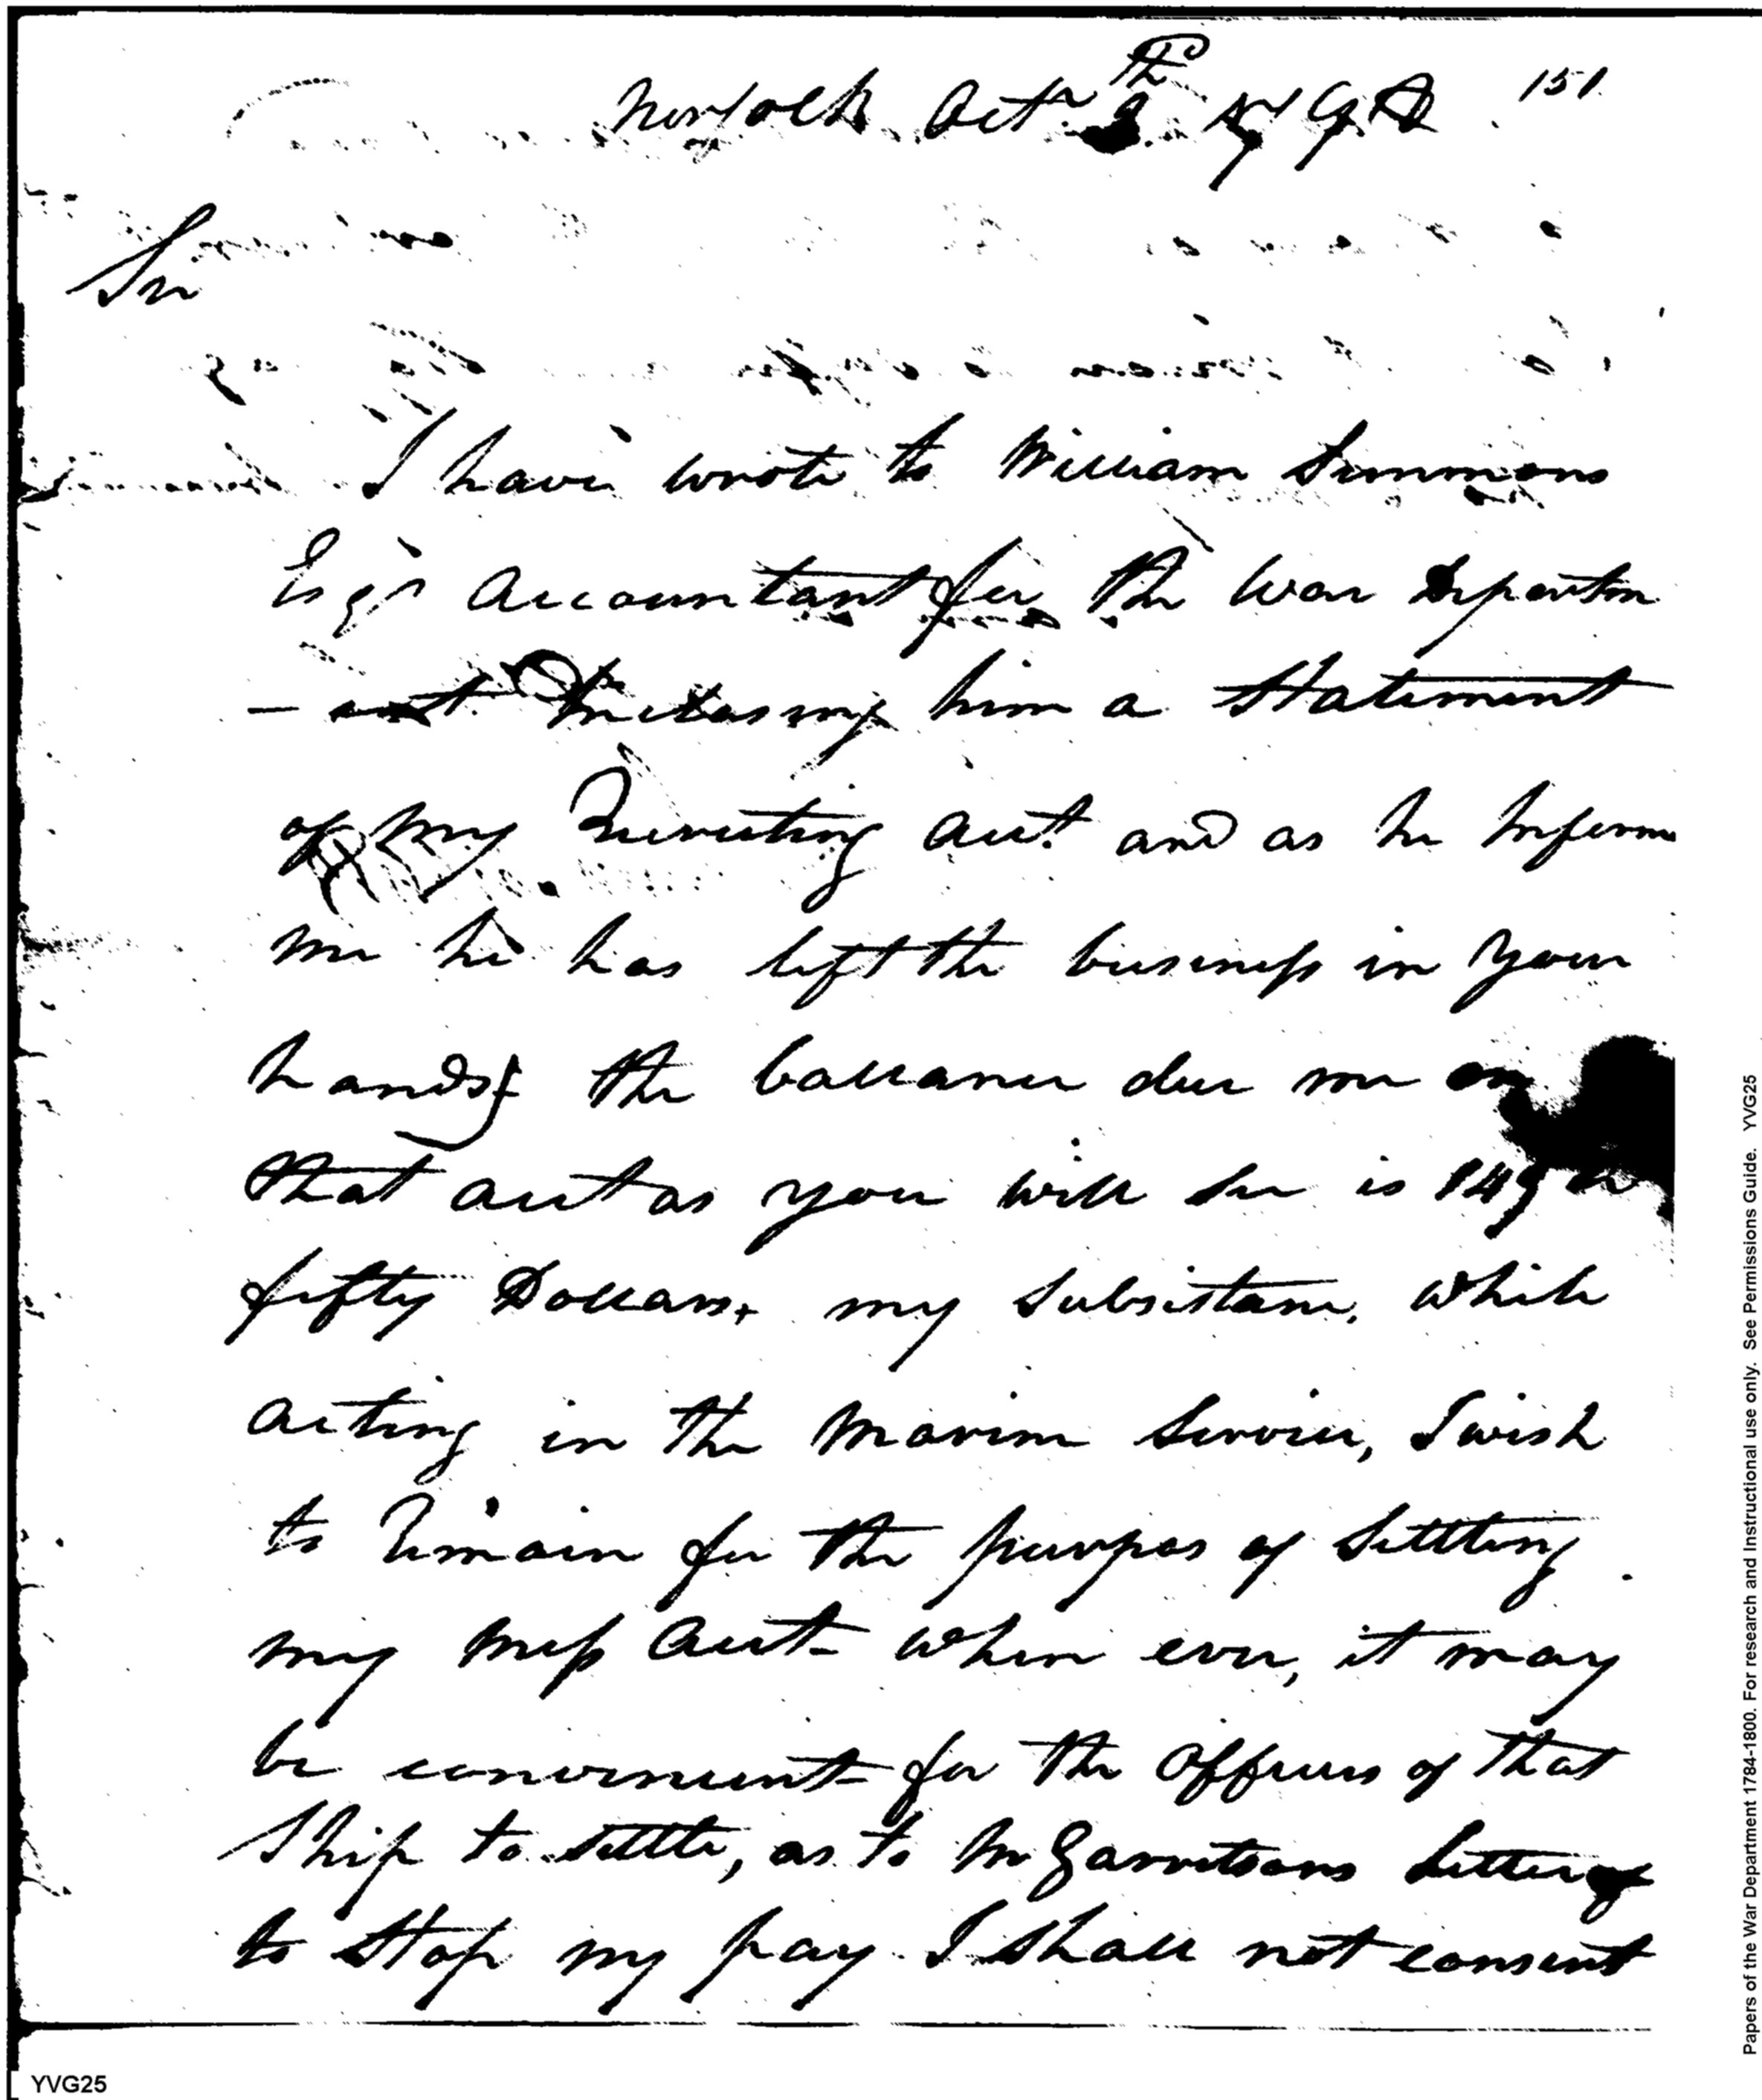 151
Norfolk Octr
Sir
I have wrote to William Simmons
Esqr Accountant for the War Departm
- ent Inclosing him a Statement
of my Recruting Acct and as he Inform
me he has left the business in your
hands the ballance due me on
that acct as you will See is 149
fifty Dollars, my Subsistance, while
acting in the Marine Service, I wish
to Remain for the purpos of Settling
my mess Acct when ever, it may
be convenient for the Officers of that
Ship to settle, as to Mr Garritsons Letter
to Stop my pay I Shall not consent
YVG25
Papers of the War Department 1784-1800. For research and Instructional use only. See Permissions Guide. YVG25